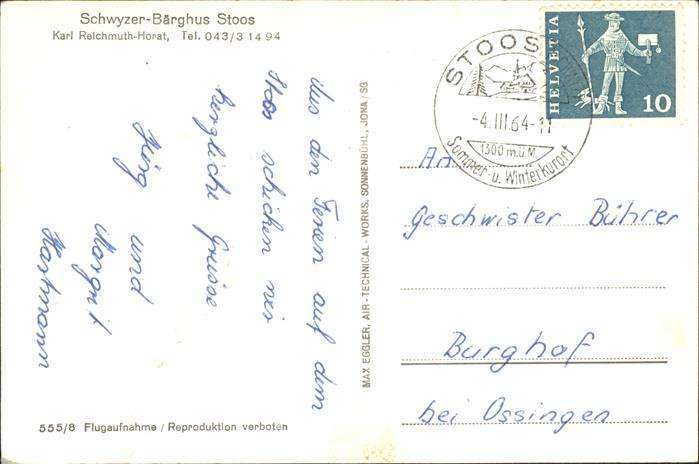 Schwyzer-Bärghus Stoos
Karl Reichmuth-Horat, Tel. 043/3 14 94
Aus den Ferien auf dem
Stoos schicken wir
herzliche Grüsse
Jürg und
Margrit
Hartmann
555/8 Flugaufnahme / Reproduktion verboten
MAX EGGLER, AIR-TECHNICAL-WORKS, SONNENBÜHL, JONA/SG
STOOS
-4.III.64-11
1300 m.ü.M
Sommer- u. Winterkurort
HELVETIA
10
An
Geschwister Bührer
Burghof
bei Ossingen